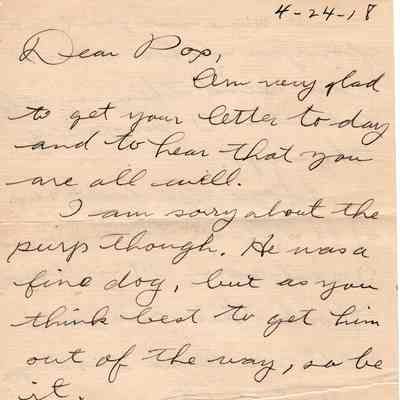 4-24-18
Dear Pop,
Am very glad
to get your letter to day
and to hear that you
are all well.
I am sorry about the
purp though. He was a
fine dog, but as you
think best to get him
out of the way, so be
it.